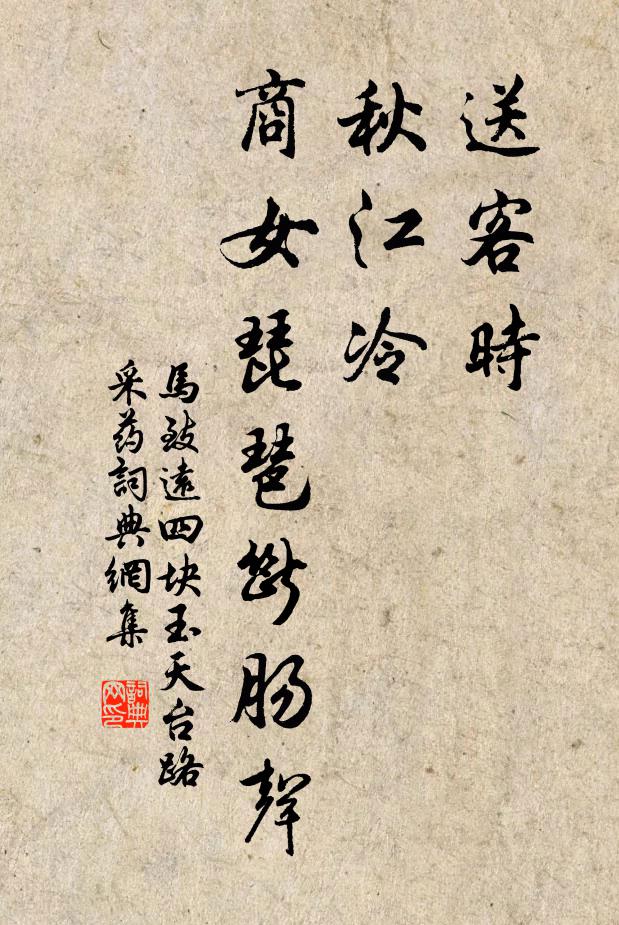 送客時
秋江冷
商女琵琶斷腸聲
馬致遠四块玉天台路
采药詞典網集
詞典网印